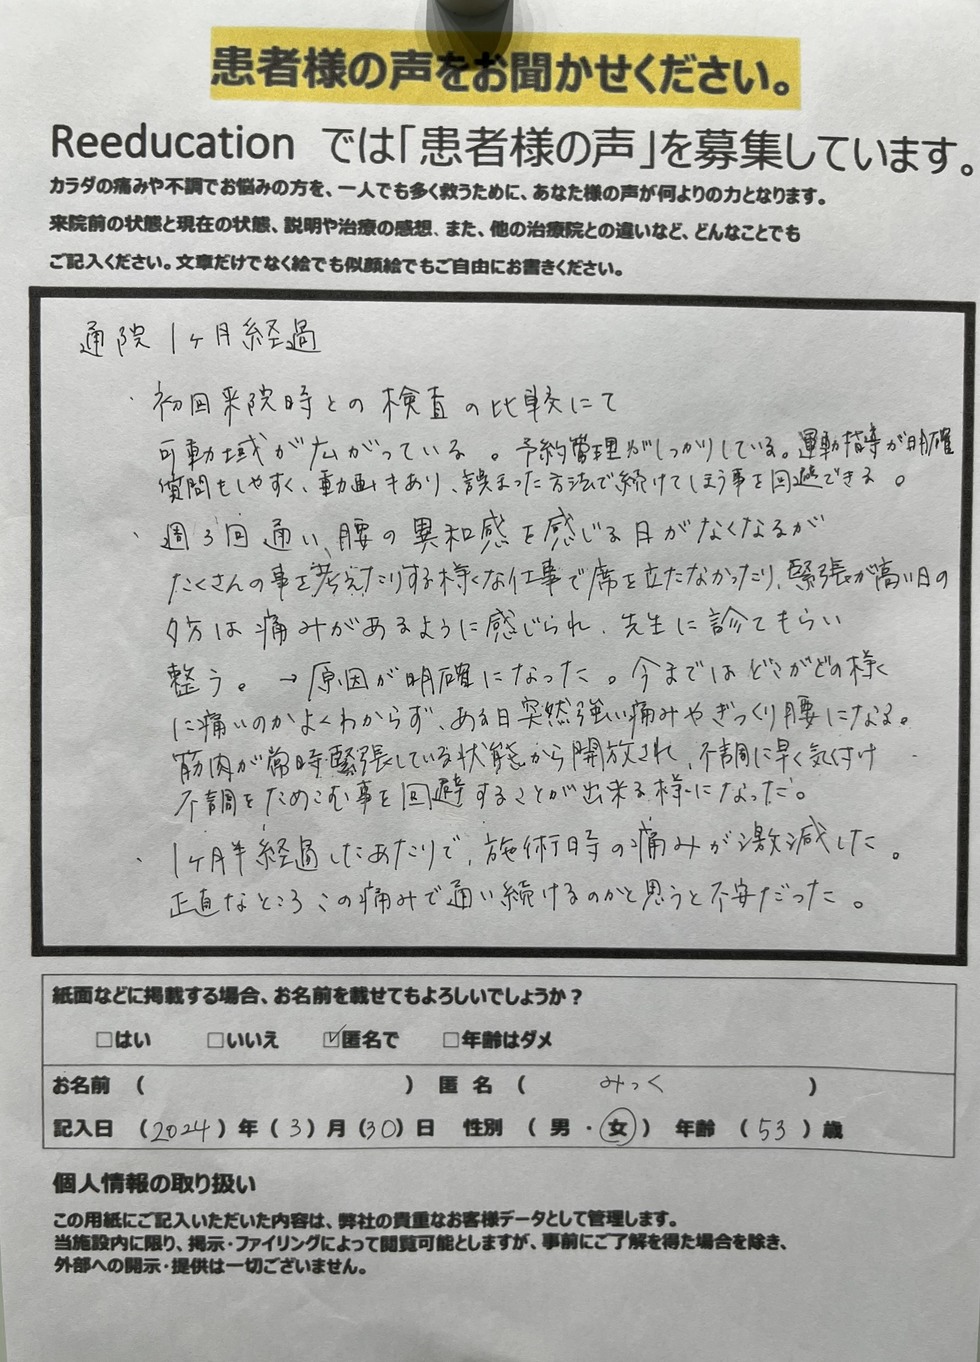 患者様の声をお聞かせください。
Reeducation では「患者様の声」を募集しています。
カラダの痛みや不調でお悩みの方を、一人でも多く救うために、あなた様の声が何よりの力となります。
来院前の状態と現在の状態、説明や治療の感想、また、他の治療院との違いなど、どんなことでも
ご記入ください。文章だけでなく絵でも似顔絵でもご自由にお書きください。
通院1ヶ月経過
・初回来院時との検査の比較にて
可動域が広がっている。予約管理がしっかりしている。運動指導が明確
質問もしやすく、動画もあり、誤まった方法で続けてしまう事を回避できる。
・週3回通い、腰の異和感を感じる日がなくなるが
たくさんの事を考えたりする様な仕事で席を立たなかったり、緊張が高い日の
夕方は痛みがあるように感じられ、先生に診てもらい
整う。→原因が明確になった。今まではどこがどの様に
に痛いのかよくわからず、ある日突然強い痛みやぎっくり腰になる。
筋肉が常時緊張している状態から開放され、不調に早く気付け
不調をためこむ事を回避することが出来る様になった。
・1ヶ月半経過したあたりで、施術時の痛みが激減した。
正直なところこの痛みで通い続けるのかと思うと不安だった。
紙面などに掲載する場合、お名前を載せてもよろしいでしょうか？
□はい □いいえ ☑匿名で □年齢はダメ
お名前 （ ） 匿名 （ みっく ）
記入日 （2024）年（3）月（30）日 性別 （ 男 ・ 女 ） 年齢 （ 53 ）歳
個人情報の取り扱い
この用紙にご記入いただいた内容は、弊社の貴重なお客様データとして管理します。
当施設内に限り、掲示・ファイリングによって閲覧可能としますが、事前にご了解を得た場合を除き、
外部への開示・提供は一切ございません。